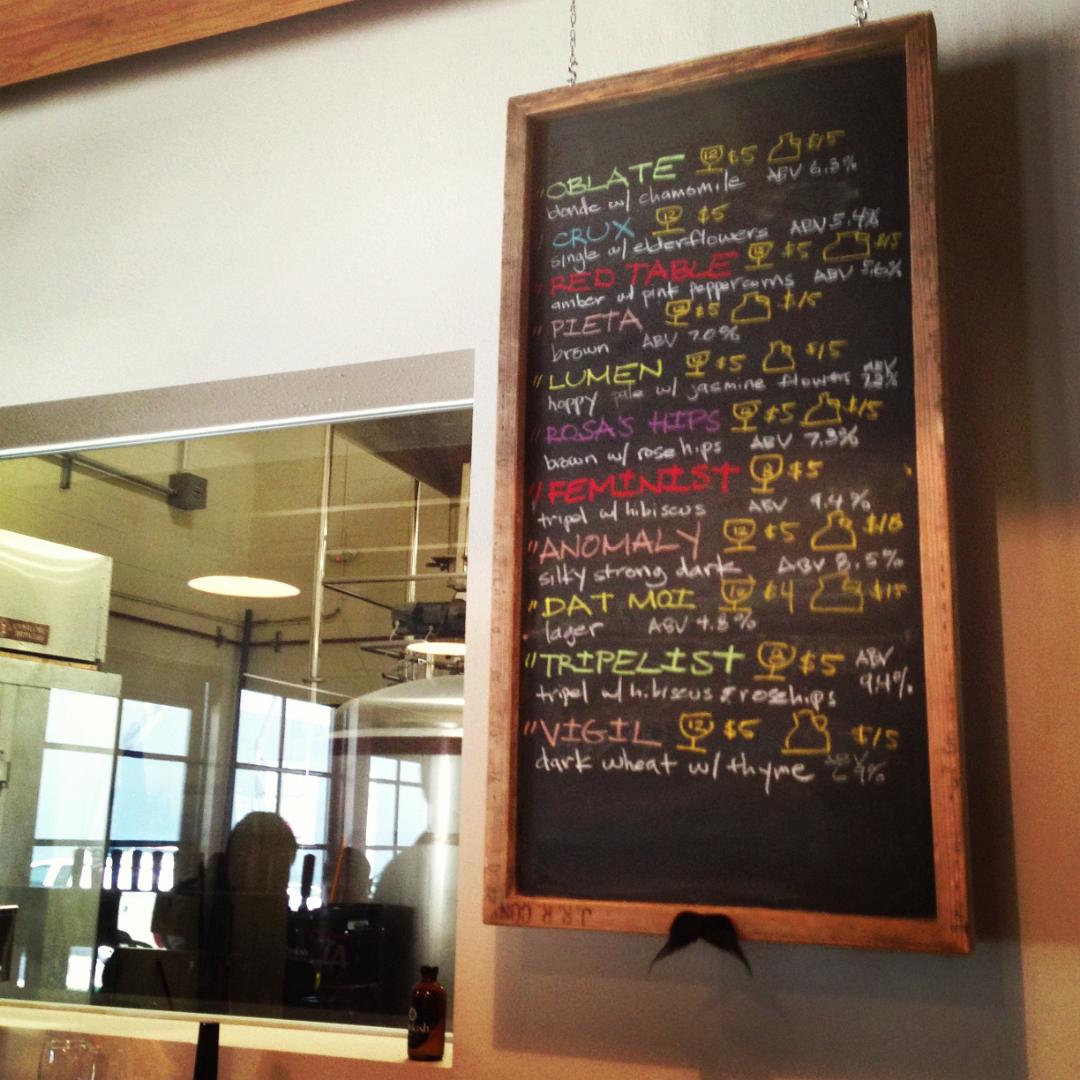 "OBLATE 12 $5 $15
blonde w/ chamomile ABV 6.3%
"CRUX 12 $5
single w/ elderflowers ABV 5.4%
"RED TABLE 12 $5 $15
amber w/ pink peppercorns ABV 5.6%
"PIETA 12 $5 $15
brown ABV 7.0%
"LUMEN 12 $5 $15
hoppy pale w/ jasmine flowers ABV
"ROSA'S HIPS 12 $5 $15
brown w/ rose hips ABV 7.3%
"FEMINIST 8 $5
tripel w/ hibiscus ABV 9.4%
"ANOMALY 12 $5 $18
silky strong dark ABV 8.5%
"DAT MOI $4 $15
lager ABV 4.8%
"TRIPELIST 8 $5 ABV
tripel w/ hibiscus & rosehips 9.4%
"VIGIL 12 $5 $15
dark wheat w/ thyme ABV
J.R.R CON